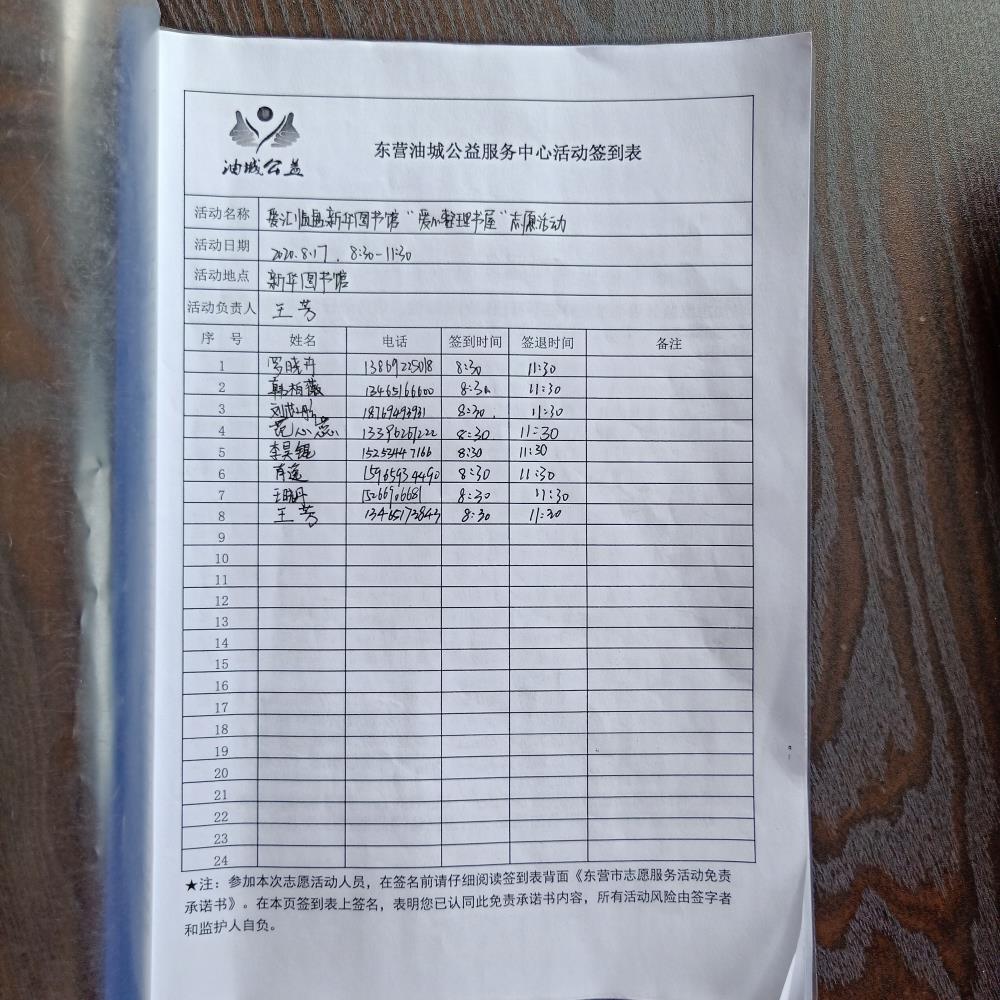 油城公益
东营油城公益服务中心活动签到表
活动名称 爱汇临邑新华图书馆“爱心整理书屋”志愿活动
活动日期 2020.8.17. 8:30-11:30
活动地点 新华图书馆
活动负责人 王芳
序 号 姓名 电话 签到时间 签退时间 备注
1 罗晓丹 13869225018 8:30 11:30
2 韩柏薇 13465166600 8:30 11:30
3 8:30. 11:30
4 范心蕊 13396261222 8:30 11:30
5 李昊锟 15253447166 8:30 11:30
6 肖遥 15965934490 8:30 11:30
7 8:30 11:30
8 王芳 13465173843 8:30 11:30
9
10
11
12
13
14
15
16
17
18
19
20
21
22
23
24
★注：参加本次志愿活动人员，在签名前请仔细阅读签到表背面《东营市志愿服务活动免责
承诺书》。在本页签到表上签名，表明您已认同此免责承诺书内容，所有活动风险由签字者
和监护人自负。